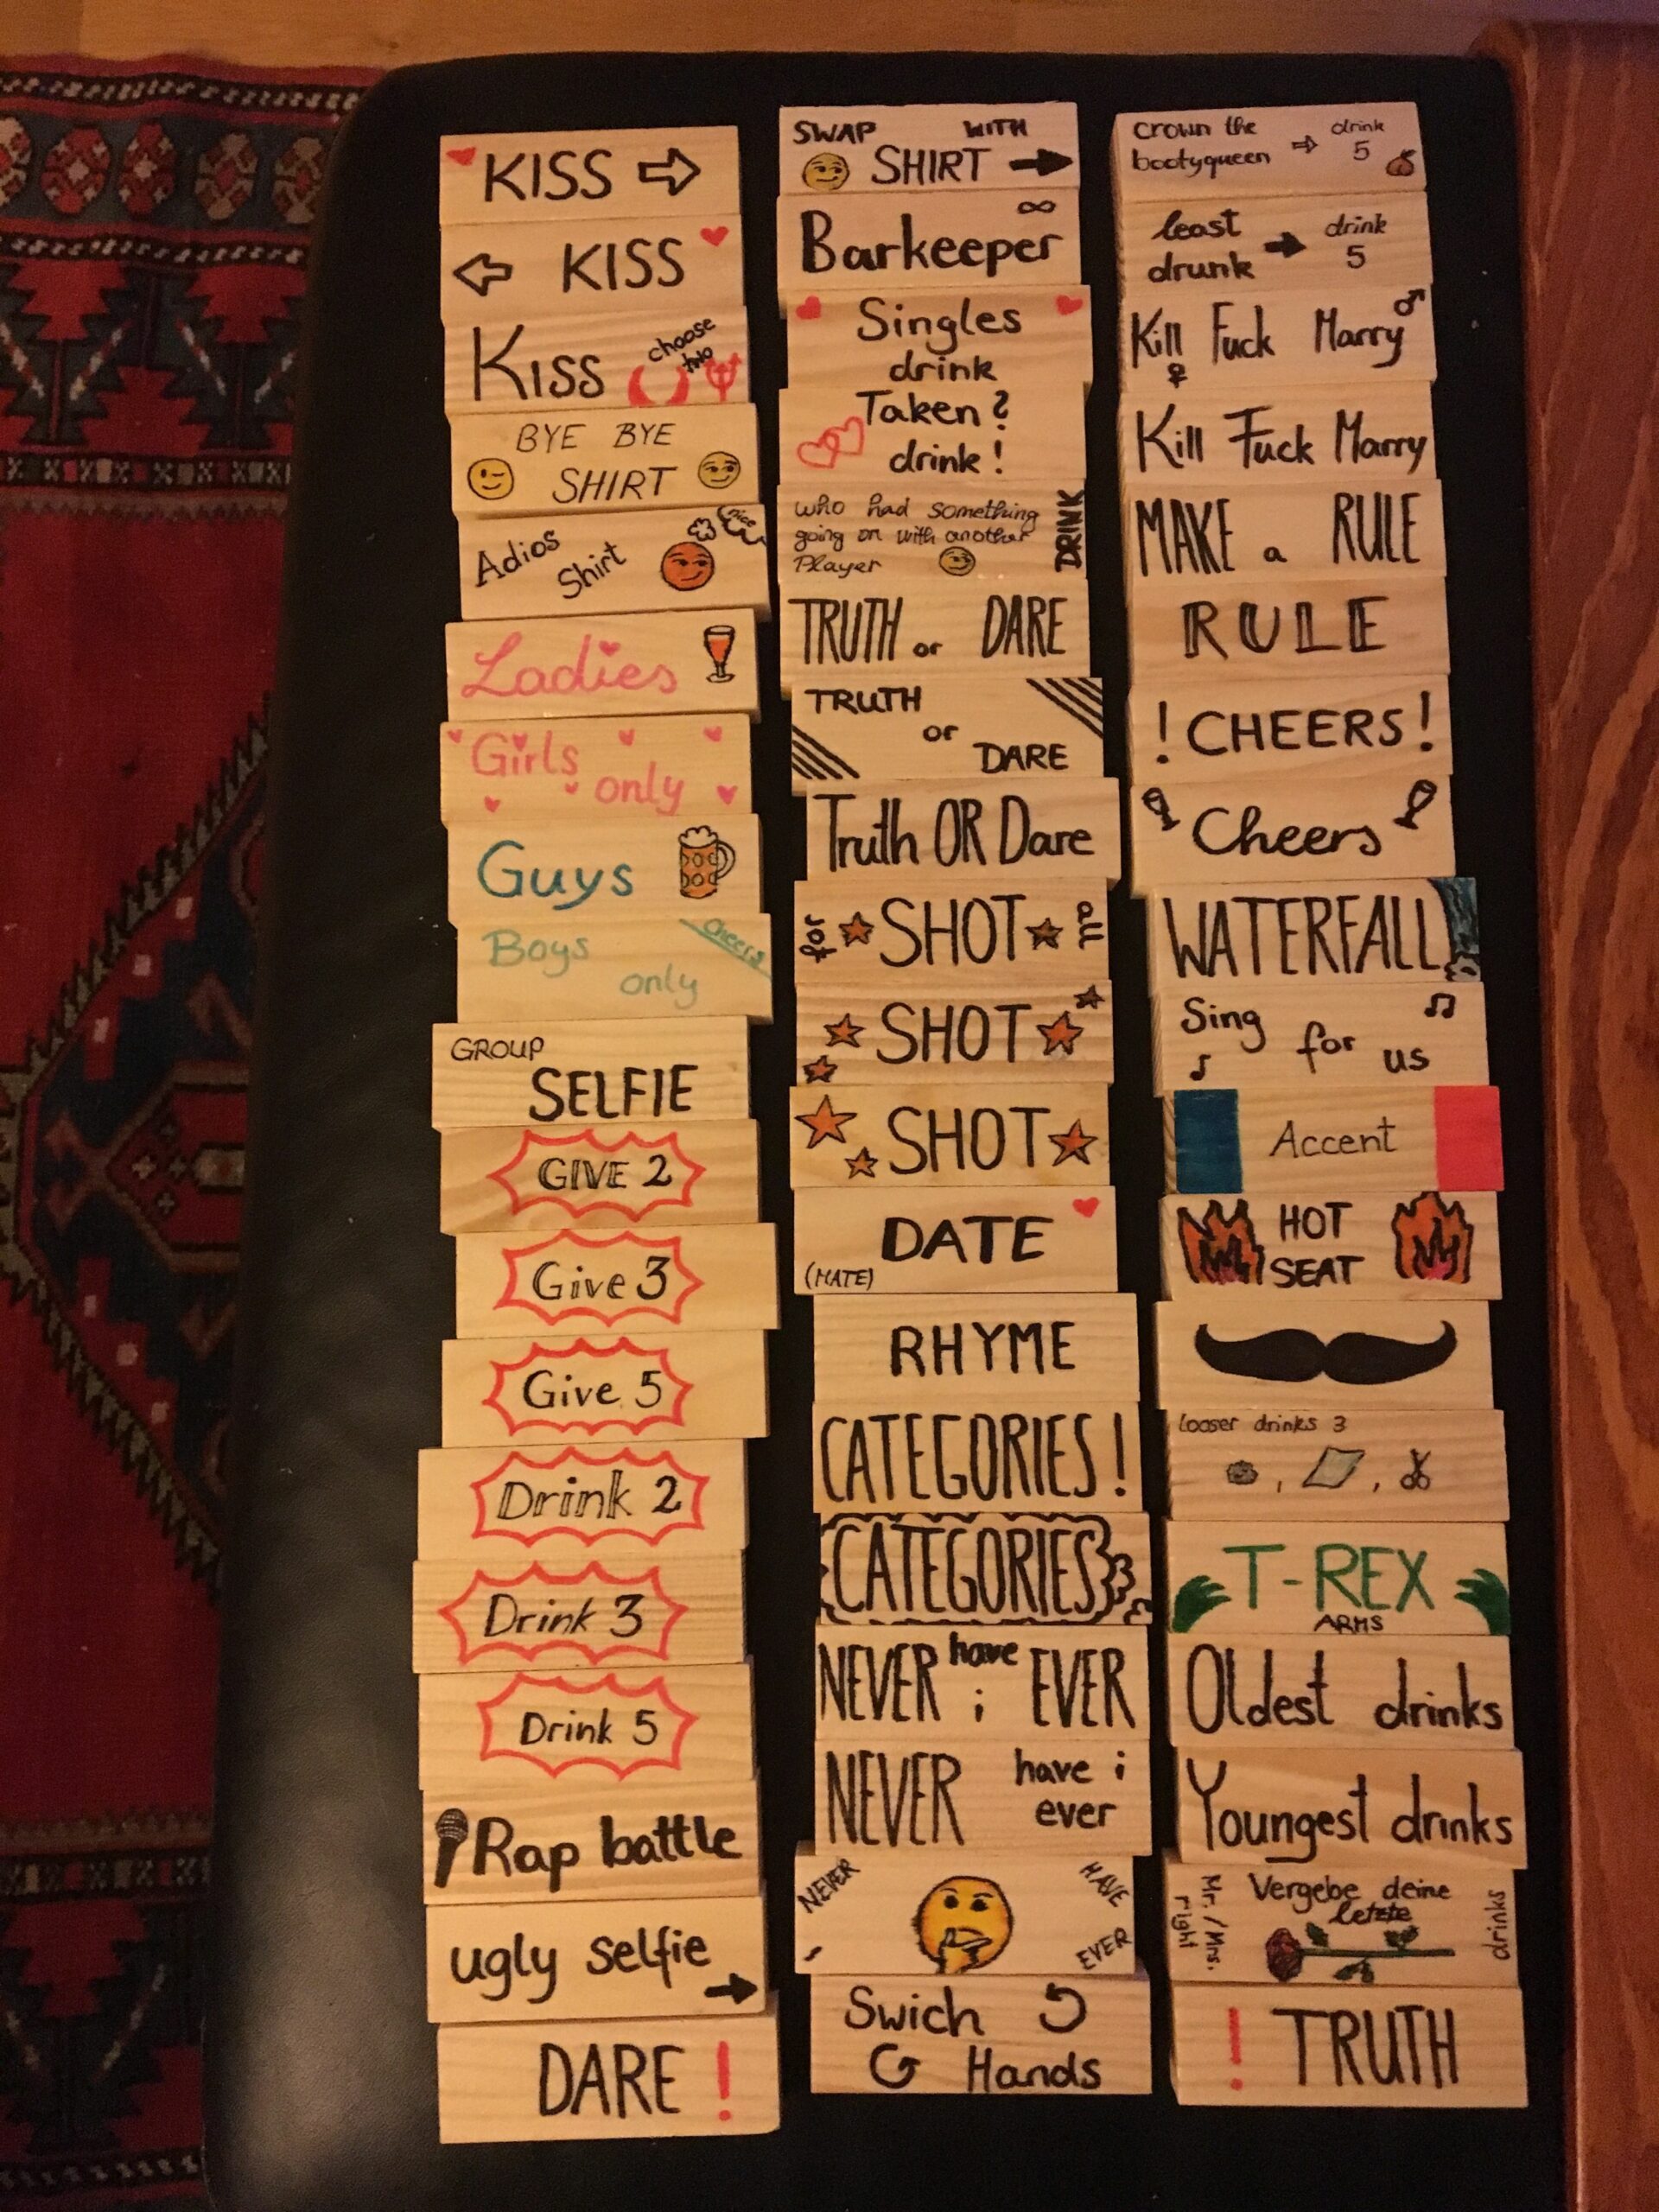 KISS
KISS
Kiss choose
two
BYE BYE
SHIRT
Adios
Shirt
nice
Ladies
Girls
only
Guys
Boys
only
cheers
GROUP
SELFIE
GIVE 2
Give 3
Give 5
Drink 2
Drink 3
Drink 5
Rap battle
ugly selfie
DARE !
SWAP WITH
SHIRT
∞
Barkeeper
Singles
drink
Taken?
drink!
who had something
going on with another
Player
DRINK
TRUTH or DARE
TRUTH
or
DARE
Truth OR Dare
for SHOT all
SHOT
SHOT
DATE
(MATE)
RHYME
CATEGORIES!
CATEGORIES
NEVER have i EVER
NEVER have i
ever
NEVER HAVE
I EVER
Swich
Hands
crown the
bootyqueen
drink
5
least
drunk
drink
5
Kill Fuck Marry ♂
♀
Kill Fuck Marry
MAKE a RULE
RULE
! CHEERS!
Cheers
WATERFALL
Sing
for us
Accent
HOT
SEAT
looser drinks 3
, ,
T-REX
ARMS
Oldest drinks
Youngest drinks
Mr./Mrs.
right
Vergebe deine
letzte
drinks
! TRUTH